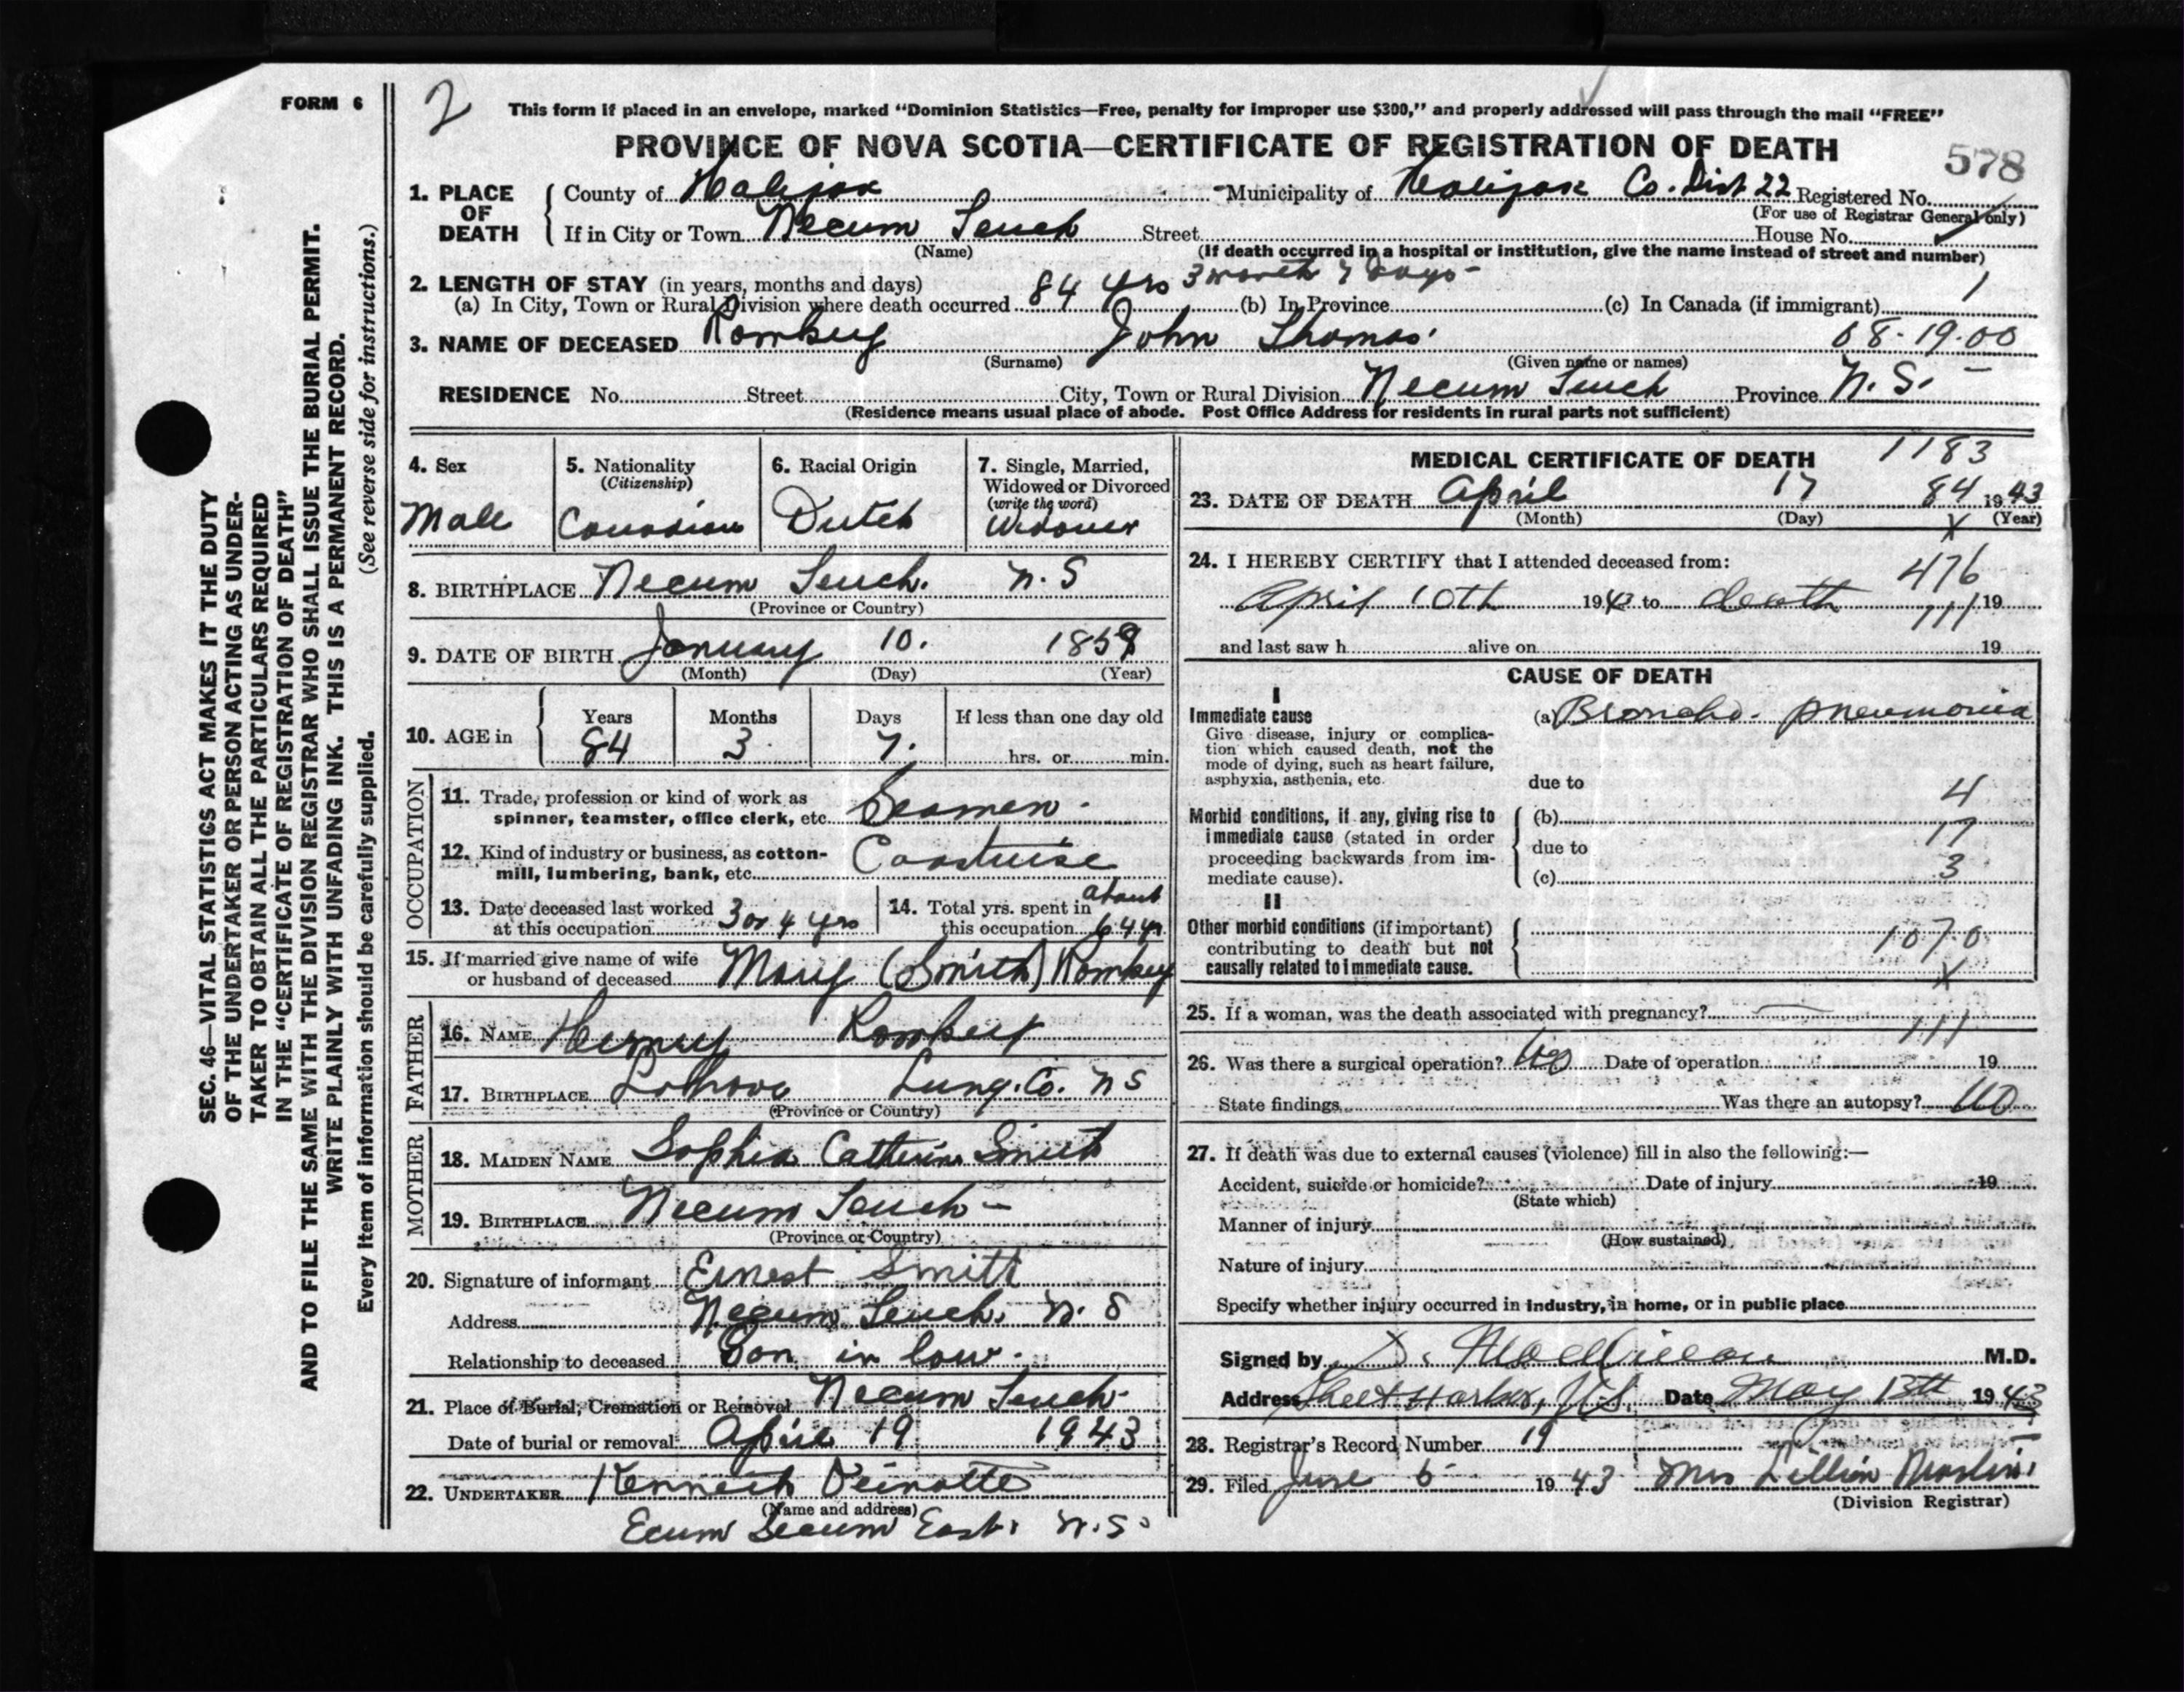 FORM 6
2
This form if placed in an envelope, marked "Dominion Statistics—Free, penalty for improper use $300," and properly addressed will pass through the mail "FREE"
PROVINCE OF NOVA SCOTIA—CERTIFICATE OF REGISTRATION OF DEATH
578
1. PLACE OF DEATH County of Halifax Municipality of Halifax Co. Dist 22 Registered No.
(For use of Registrar General only)
If in City or Town Necum Teuch Street House No.
(Name) (If death occurred in a hospital or institution, give the name instead of street and number)
2. LENGTH OF STAY (in years, months and days)
(a) In City, Town or Rural Division where death occurred 84 yrs 3 month 7 days - (b) In Province (c) In Canada (if immigrant) 1
3. NAME OF DECEASED Romkey John Thomas 68-19-00
(Surname) (Given name or names)
RESIDENCE No. Street City, Town or Rural Division Necum Teuch Province N.S. -
(Residence means usual place of abode. Post Office Address for residents in rural parts not sufficient)
4. Sex
Male
5. Nationality
(Citizenship)
Canadian
6. Racial Origin
Dutch
7. Single, Married, Widowed or Divorced
(write the word)
Widower
8. BIRTHPLACE Necum Teuch. N.S
(Province or Country)
9. DATE OF BIRTH January 10. 1859
(Month) (Day) (Year)
10. AGE in Years Months Days If less than one day old
84 3 7. hrs. or min.
OCCUPATION
11. Trade, profession or kind of work as
spinner, teamster, office clerk, etc. Seaman.
12. Kind of industry or business, as cotton-
mill, lumbering, bank, etc. Coastwise
13. Date deceased last worked
at this occupation 3 or 4 yrs
14. Total yrs. spent in about
this occupation 64 yr
15. If married give name of wife
or husband of deceased Mary (Smith) Romkey
FATHER
16. NAME Henry Romkey
17. BIRTHPLACE Lung. Co. NS
(Province or Country)
MOTHER
18. MAIDEN NAME Sophia Catherine Smith
19. BIRTHPLACE Necum Teuch -
(Province or Country)
20. Signature of informant Ernest Smith
Address Necum Teuch, N.S
Relationship to deceased Son in law.
21. Place of Burial, Cremation or Removal Necum Teuch
Date of burial or removal April 19 1943
22. UNDERTAKER Kenneth Peinotte
(Name and address)
Ecum Secum East. N.S.
MEDICAL CERTIFICATE OF DEATH 1183
23. DATE OF DEATH April 17 84 1943
(Month) (Day) X (Year)
24. I HEREBY CERTIFY that I attended deceased from:
476
April 10th 1943 to death 19
111
and last saw h alive on 19
CAUSE OF DEATH
I
Immediate cause (a) Broncho-pneumonia
Give disease, injury or complica-
tion which caused death, not the
mode of dying, such as heart failure,
asphyxia, asthenia, etc.
due to 4
Morbid conditions, if any, giving rise to (b)
immediate cause (stated in order 17
proceeding backwards from im- due to
mediate cause). (c) 3
II
Other morbid conditions (if important)
contributing to death but not 107.0
causally related to immediate cause. X
25. If a woman, was the death associated with pregnancy? —
111
26. Was there a surgical operation? Date of operation 19
State findings Was there an autopsy? no
27. If death was due to external causes (violence) fill in also the following:—
Accident, suicide or homicide? Date of injury 19
(State which)
Manner of injury
(How sustained)
Nature of injury
Specify whether injury occurred in industry, in home, or in public place
Signed by M.D.
Address Sheet Harbor, N.S. Date May 13th 1943
28. Registrar's Record Number 19
29. Filed June 5 1943 Mrs Lillian
(Division Registrar)
SEC. 46—VITAL STATISTICS ACT MAKES IT THE DUTY
OF THE UNDERTAKER OR PERSON ACTING AS UNDER-
TAKER TO OBTAIN ALL THE PARTICULARS REQUIRED
IN THE "CERTIFICATE OF REGISTRATION OF DEATH"
AND TO FILE THE SAME WITH THE DIVISION REGISTRAR WHO SHALL ISSUE THE BURIAL PERMIT.
WRITE PLAINLY WITH UNFADING INK. THIS IS A PERMANENT RECORD.
Every item of information should be carefully supplied. (See reverse side for instructions.)